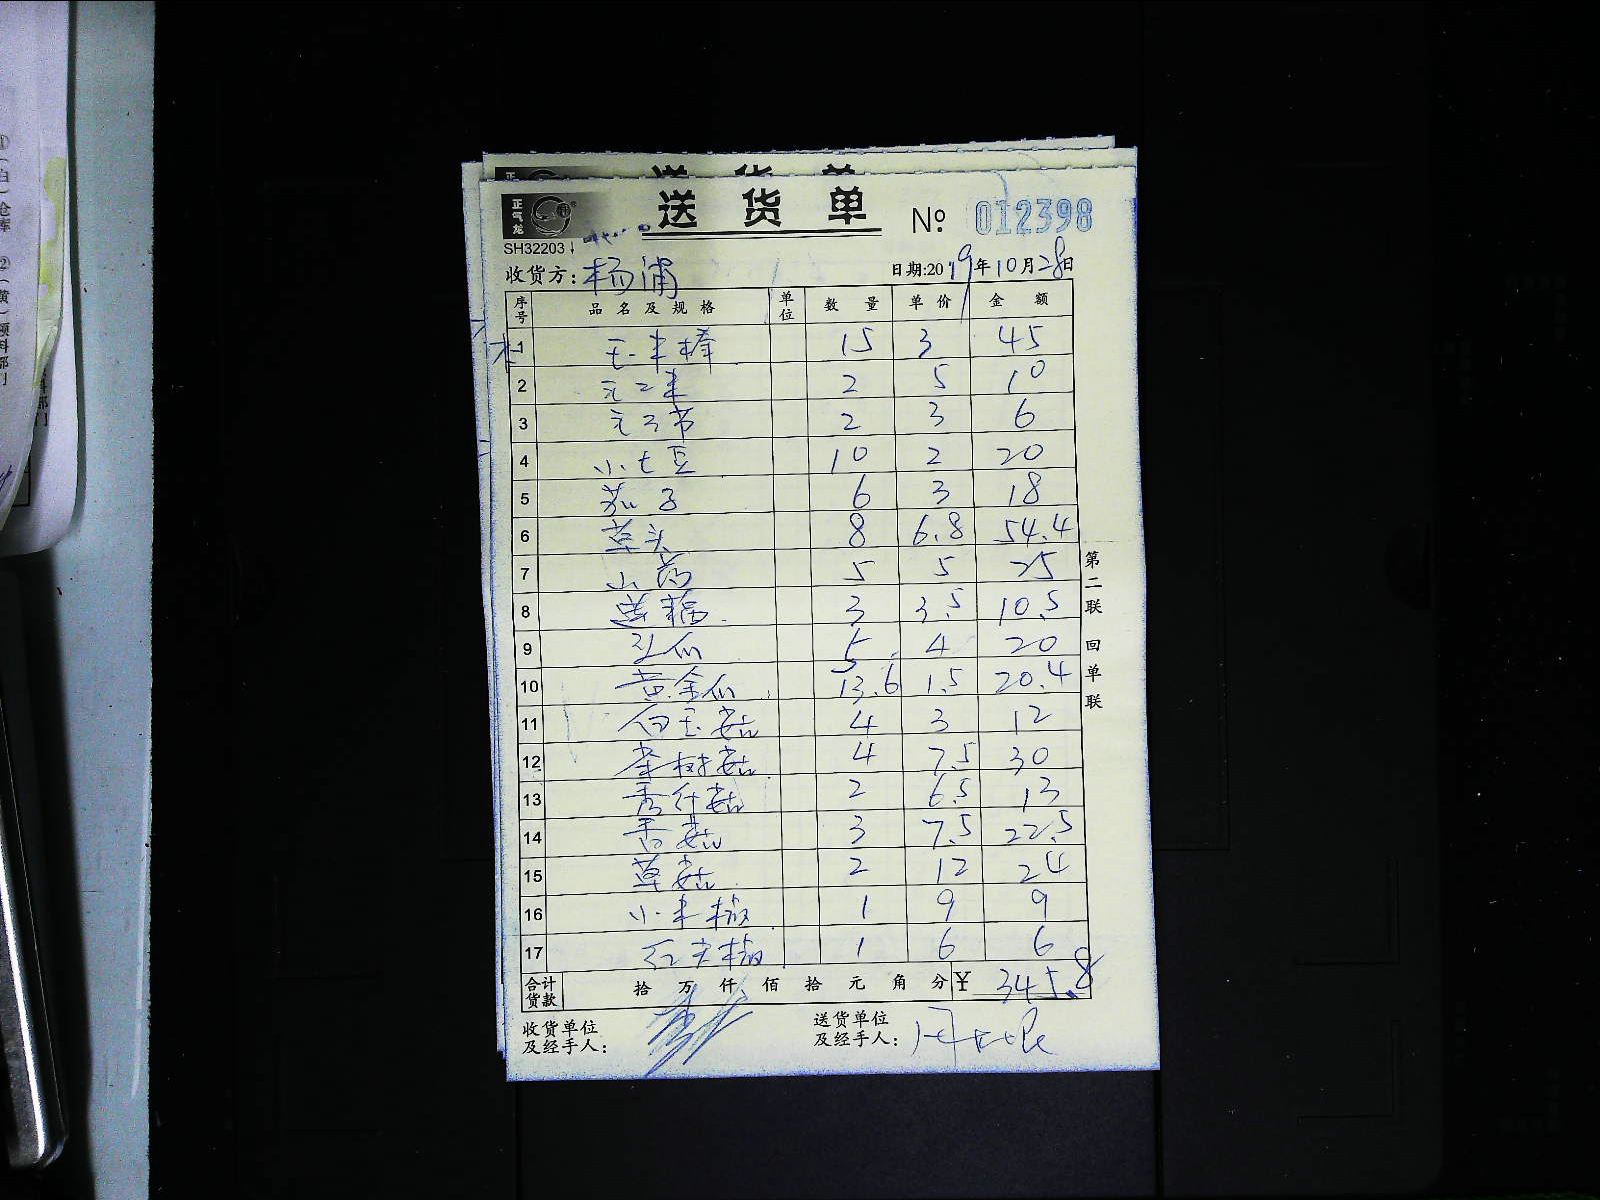 送货单
正气龙
SH32203
№ 012398
收货方: 杨浦
日期:2019年10月28日
序号 品名及规格 单位 数量 单价 金额
1 玉米棒 15 3 45
2 2 5 10
3 2 3 6
4 小土豆 10 2 20
5 茄子 6 3 18
6 草头 8 6.8 54.4
7 山药 5 5 25
8 莲藕 3 3.5 10.5
9 瓜 5 4 20
10 黄金瓜 13.6 1.5 20.4
11 白玉菇 4 3 12
12 茶树菇 4 7.5 30
13 秀珍菇 2 6.5 13
14 香菇 3 7.5 22.5
15 草菇 2 12 24
16 小米椒 1 9 9
17 红尖椒 1 6 6
合计货款 拾 万 仟 佰 拾 元 角 分 ¥ 345.8
收货单位及经手人:
送货单位及经手人:
第二联 回单联